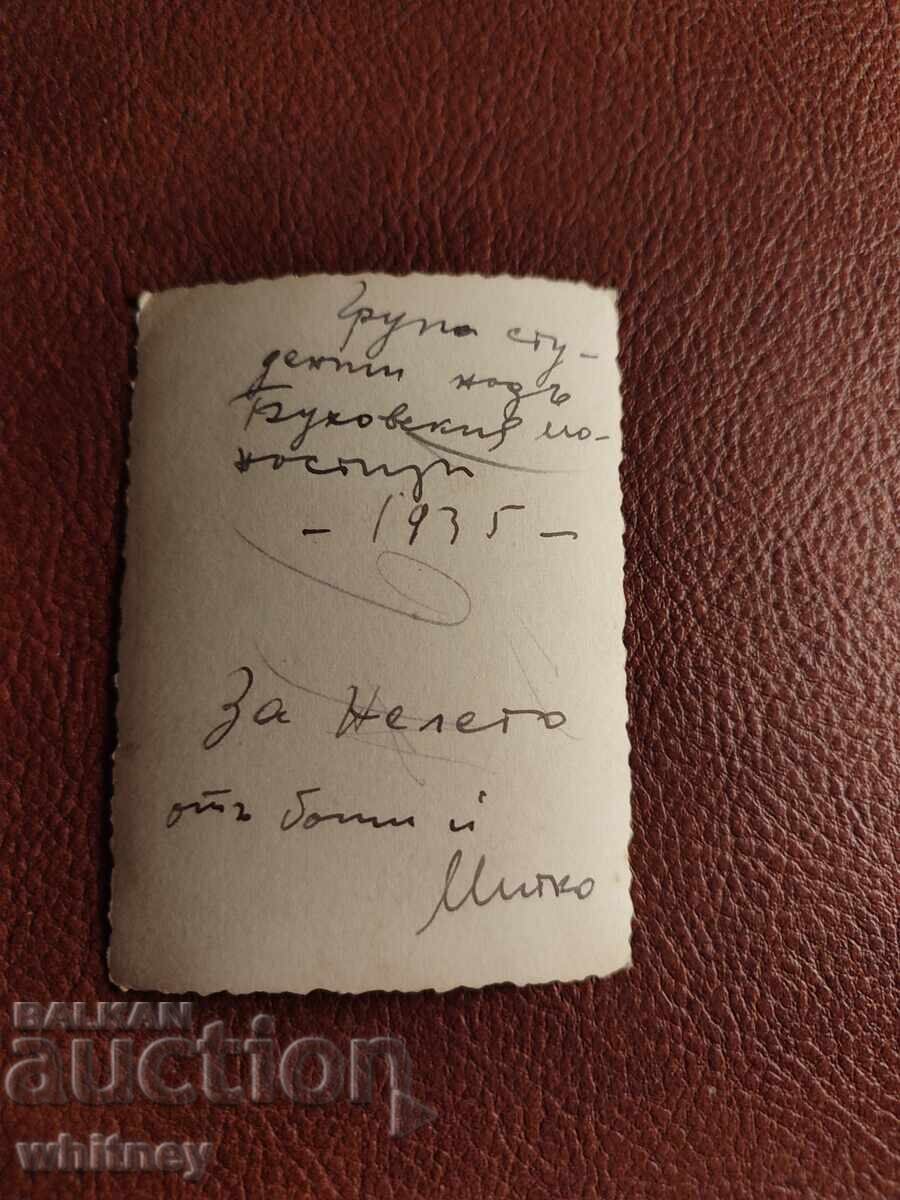 Група сту-
денти надъ
Буховския ма-
настирь
- 1935 -
За Нелето
отъ боти ѝ
Митко
BALKAN
auction
whitney